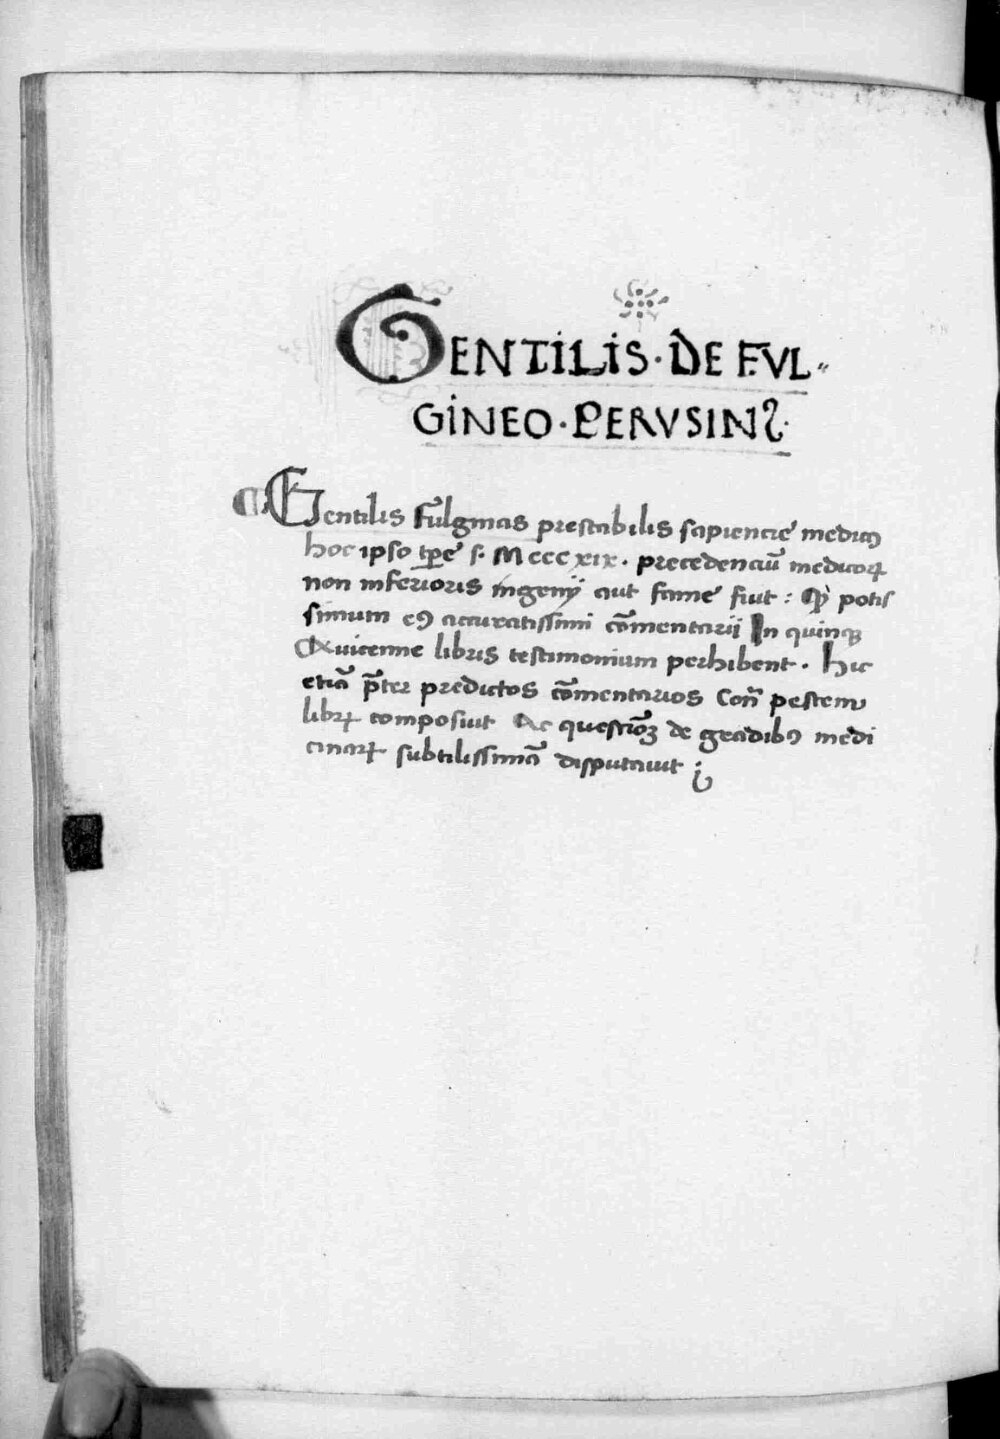 GENTILIS · DE FVL〃
GINEO · PERVSINꝰ
¶ Gentilis Fulginas prestabilis sapiencie medicꝰ
hoc ipso tp̄e s. Mcccxix. precedenciū medicoꝝ
non inferioris ingenij aut fame fuit : Qd̓ potis
simum eiꝰ accuratissimi cōmentarii In quinqꝫ
Auicenne libris testimonium perhibent. Hic
etiā p̄ter predictos cōmentarios Con̄ pestem
libꝝ composuit Ac questiōēꝫ de gradibꝰ medi
cinaꝝ subtilissimā disputauit ;